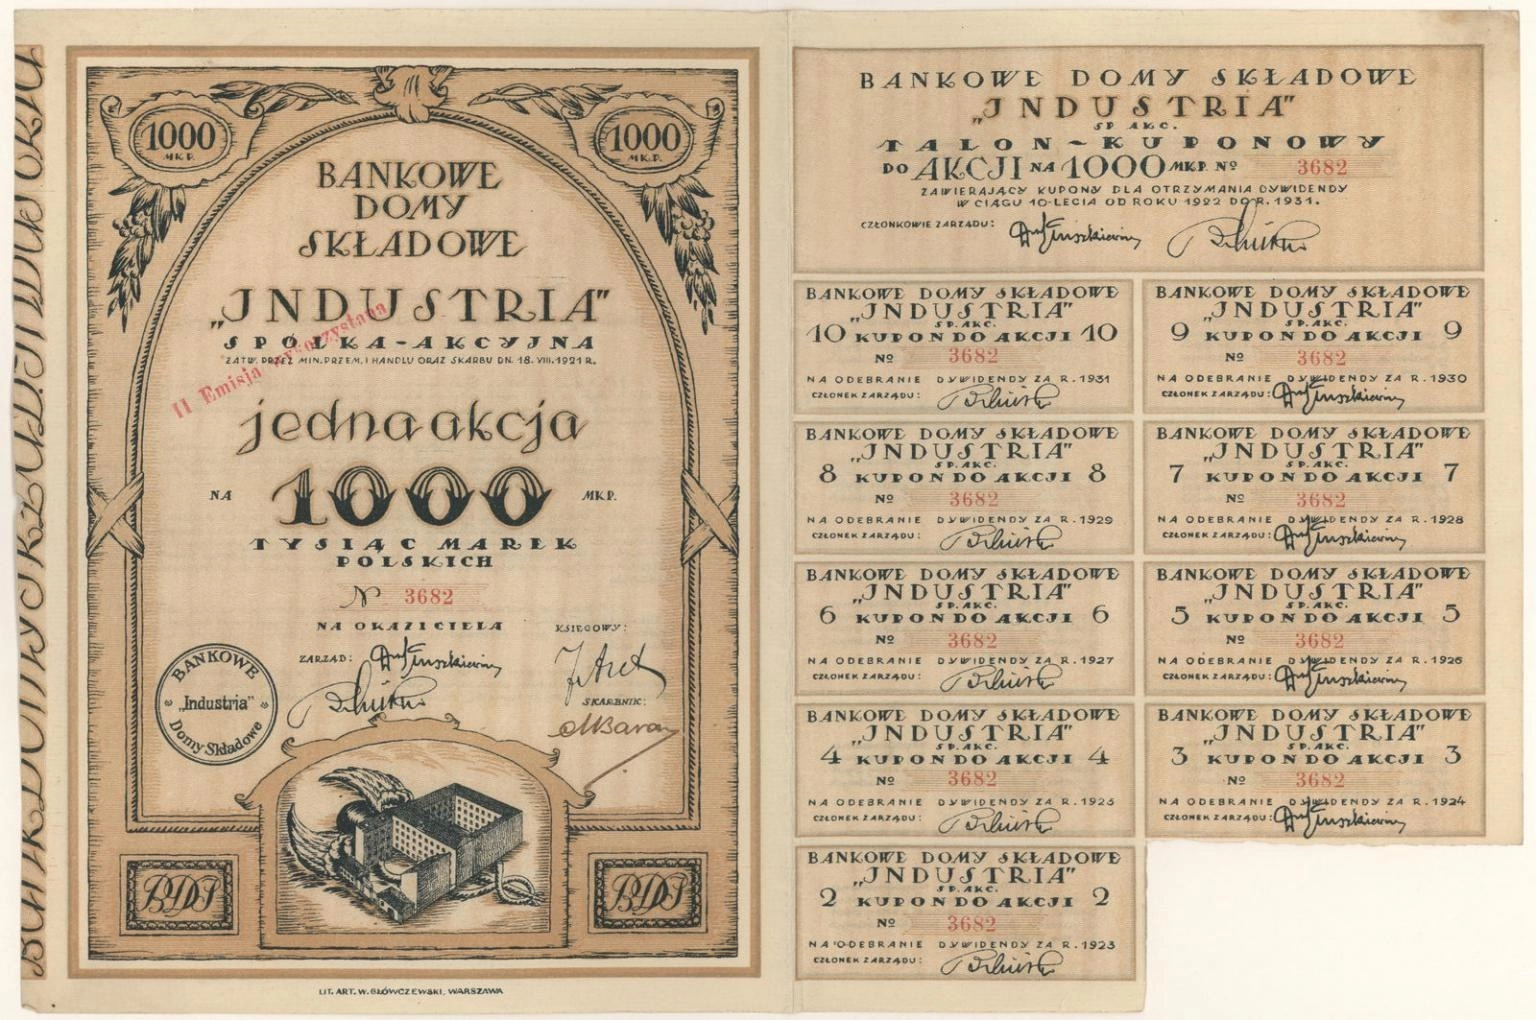 1000
MKP.
1000
MKP.
BANKOWE
DOMY
SKŁADOWE
„INDUSTRIA"
SPÓŁKA-AKCYJNA
ZATW. PRZEZ MIN. PRZEM. I HANDLU ORAZ SKARBU DN. 18. VIII. 1921 R.
II Emisja wykorzystana
jedna akcja
NA 1000 MKP.
TYSIĄC MAREK
POLSKICH
№ 3682
NA OKAZICIELA
ZARZĄD:
KSIĘGOWY:
SKARBNIK:
BANKOWE
„Industria"
Domy Składowe
BDI
BDI
LIT. ART. W. GŁÓWCZEWSKI, WARSZAWA
BANKOWE DOMY SKŁADOWE
„INDUSTRIA"
SP. AKC.
TALON-KUPONOWY
DO AKCJI NA 1000 MKP. № 3682
ZAWIERAJĄCY KUPONY DLA OTRZYMANIA DYWIDENDY
W CIĄGU 10-LECIA OD ROKU 1922 DO R. 1931.
CZŁONKOWIE ZARZĄDU:
BANKOWE DOMY SKŁADOWE
„INDUSTRIA"
SP. AKC.
10 KUPON DO AKCJI 10
№ 3682
NA ODEBRANIE DYWIDENDY ZA R. 1931
CZŁONEK ZARZĄDU:
BANKOWE DOMY SKŁADOWE
„INDUSTRIA"
SP. AKC.
9 KUPON DO AKCJI 9
№ 3682
NA ODEBRANIE DYWIDENDY ZA R. 1930
CZŁONEK ZARZĄDU:
BANKOWE DOMY SKŁADOWE
„INDUSTRIA"
SP. AKC.
8 KUPON DO AKCJI 8
№ 3682
NA ODEBRANIE DYWIDENDY ZA R. 1929
CZŁONEK ZARZĄDU:
BANKOWE DOMY SKŁADOWE
„INDUSTRIA"
SP. AKC.
7 KUPON DO AKCJI 7
№ 3682
NA ODEBRANIE DYWIDENDY ZA R. 1928
CZŁONEK ZARZĄDU:
BANKOWE DOMY SKŁADOWE
„INDUSTRIA"
SP. AKC.
6 KUPON DO AKCJI 6
№ 3682
NA ODEBRANIE DYWIDENDY ZA R. 1927
CZŁONEK ZARZĄDU:
BANKOWE DOMY SKŁADOWE
„INDUSTRIA"
SP. AKC.
5 KUPON DO AKCJI 5
№ 3682
NA ODEBRANIE DYWIDENDY ZA R. 1926
CZŁONEK ZARZĄDU:
BANKOWE DOMY SKŁADOWE
„INDUSTRIA"
SP. AKC.
4 KUPON DO AKCJI 4
№ 3682
NA ODEBRANIE DYWIDENDY ZA R. 1925
CZŁONEK ZARZĄDU:
BANKOWE DOMY SKŁADOWE
„INDUSTRIA"
SP. AKC.
3 KUPON DO AKCJI 3
№ 3682
NA ODEBRANIE DYWIDENDY ZA R. 1924
CZŁONEK ZARZĄDU:
BANKOWE DOMY SKŁADOWE
„INDUSTRIA"
SP. AKC.
2 KUPON DO AKCJI 2
№ 3682
NA ODEBRANIE DYWIDENDY ZA R. 1923
CZŁONEK ZARZĄDU: